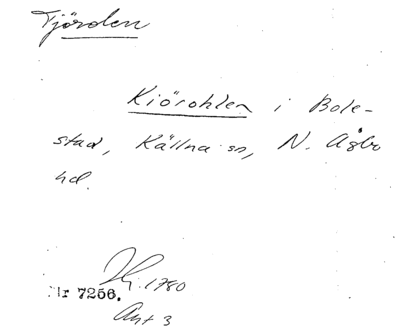 Tjörden
Kiörohlen i Bole-
stad, Källna sn, N. Åsbo
hd.
1780
Nr 7256.
Akt 3